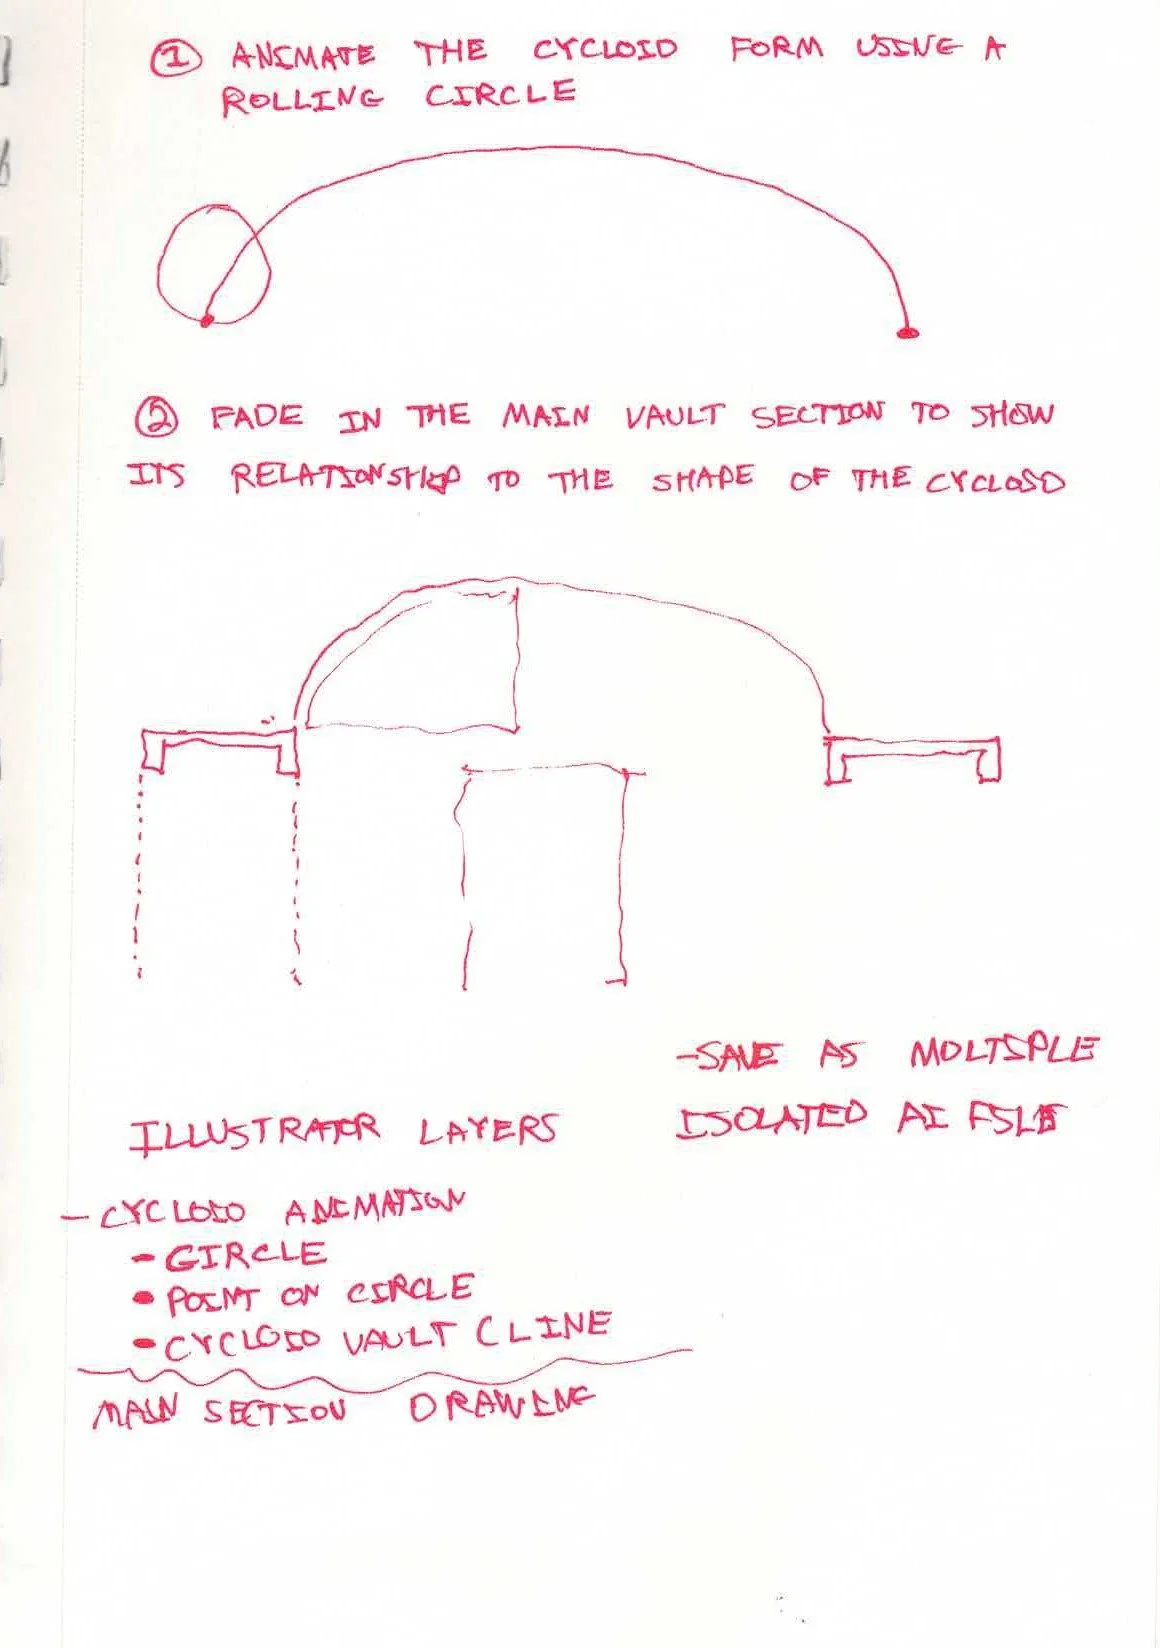 ① ANIMATE THE CYCLOID FORM USING A
ROLLING CIRCLE
② FADE IN THE MAIN VAULT SECTION TO SHOW
ITS RELATIONSHIP TO THE SHAPE OF THE CYCLOID
-SAVE AS MOLTIPLE
ISOLATED AI FILES
ILLUSTRATOR LAYERS
- CYCLOID ANIMATION
- CIRCLE
• POINT ON CIRCLE
• CYCLOID VAULT CLINE
MAIN SECTION DRAWING